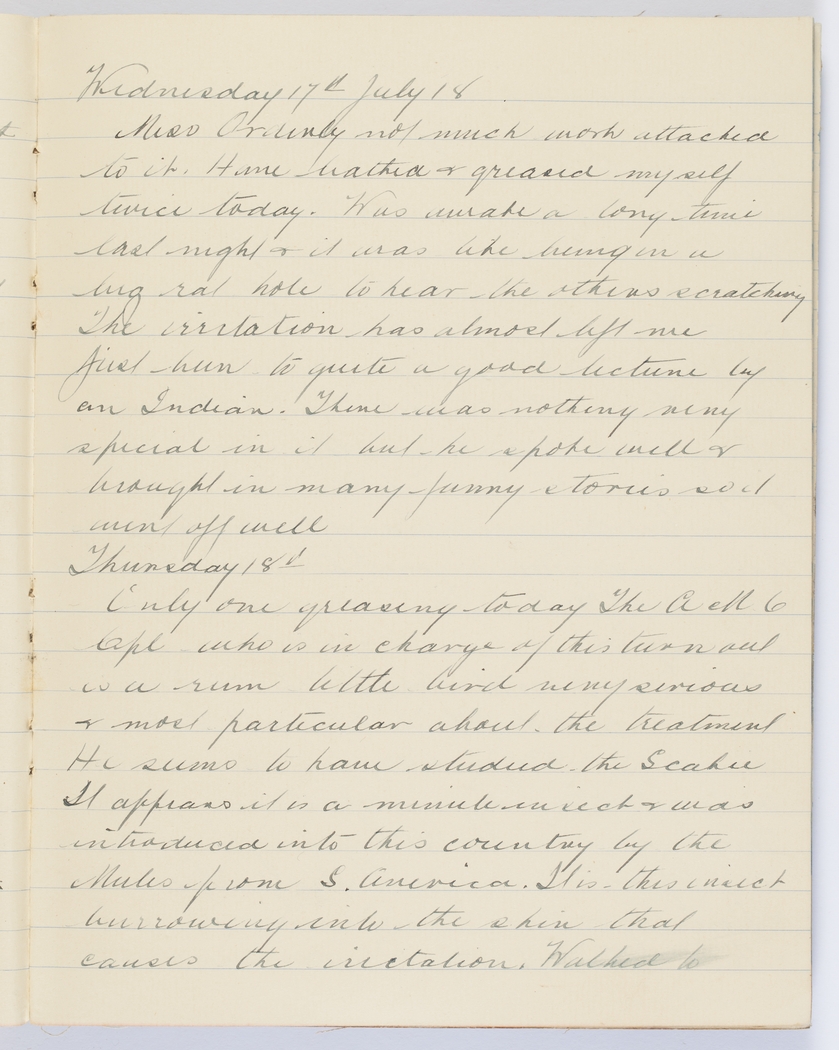 Wednesday 17th July 18
Mess Orderly not much work attached
to it. Have bathed & greased myself
twice today. Was awake a long time
last night & it was like being in a
big rat hole to hear the others scratching
The irritation has almost left me
Just been to quite a good lecture by
an Indian. There was nothing very
special in it but he spoke well &
brought in many funny stories so it
went off well
Thursday 18th
Only one greasing today The A M C
Cpl who is in charge of this turn out
is a rum little bird very serious
& most particular about the treatment
He seems to have studied the Scabie
It appears it is a minute insect & was
introduced into this country by the
Mules from S. America. It is this insect
burrowing into the skin that
causes the irritation. Walked to